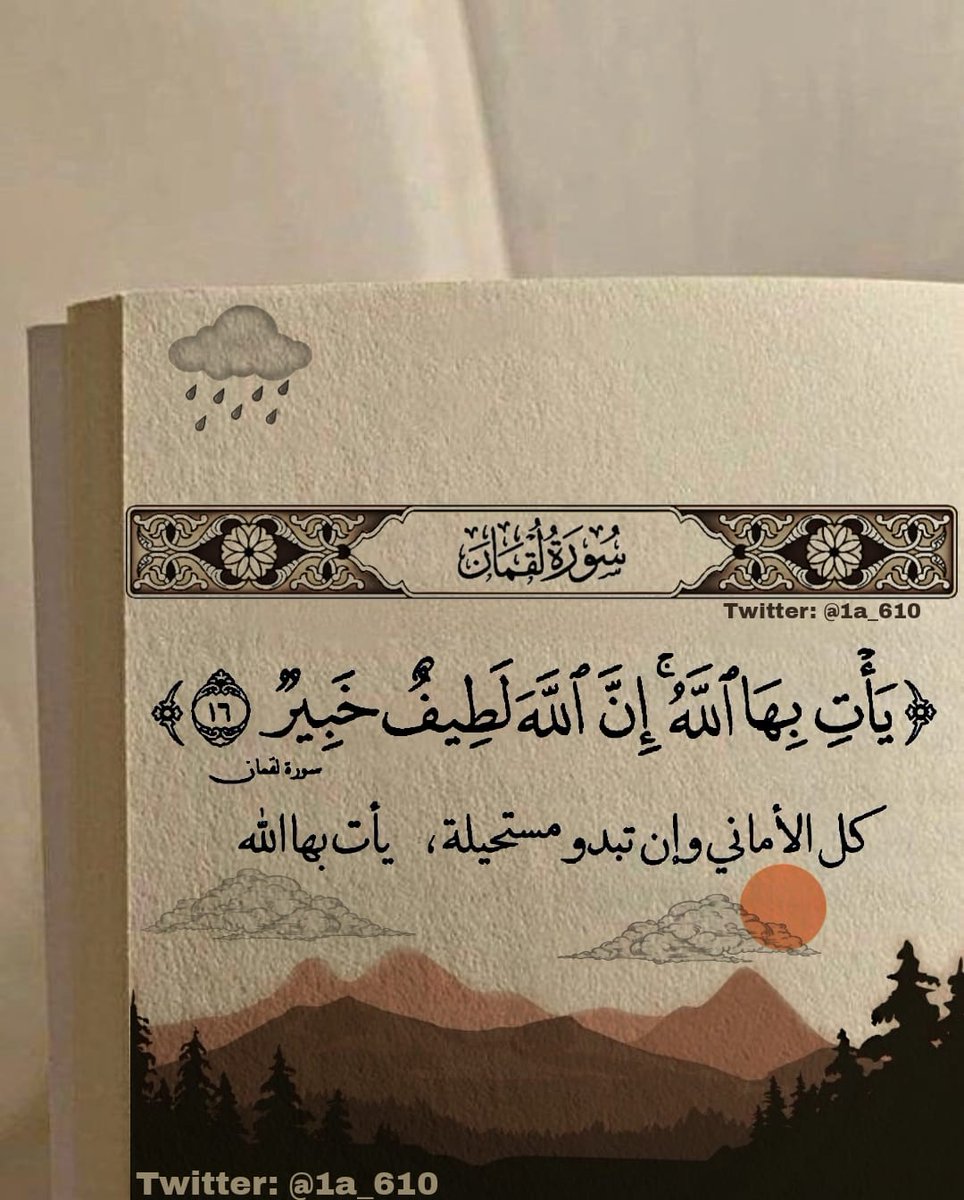 سُورَةُ لُقْمَانَ
Twitter: @1a_610
﴿يَأْتِ بِهَا ٱللَّهُ ۚ إِنَّ ٱللَّهَ لَطِيفٌ خَبِيرٌ ١٦﴾
سورة لقمان
كل الأماني وإن تبدو مستحيلة، يأت بها الله
Twitter: @1a_610